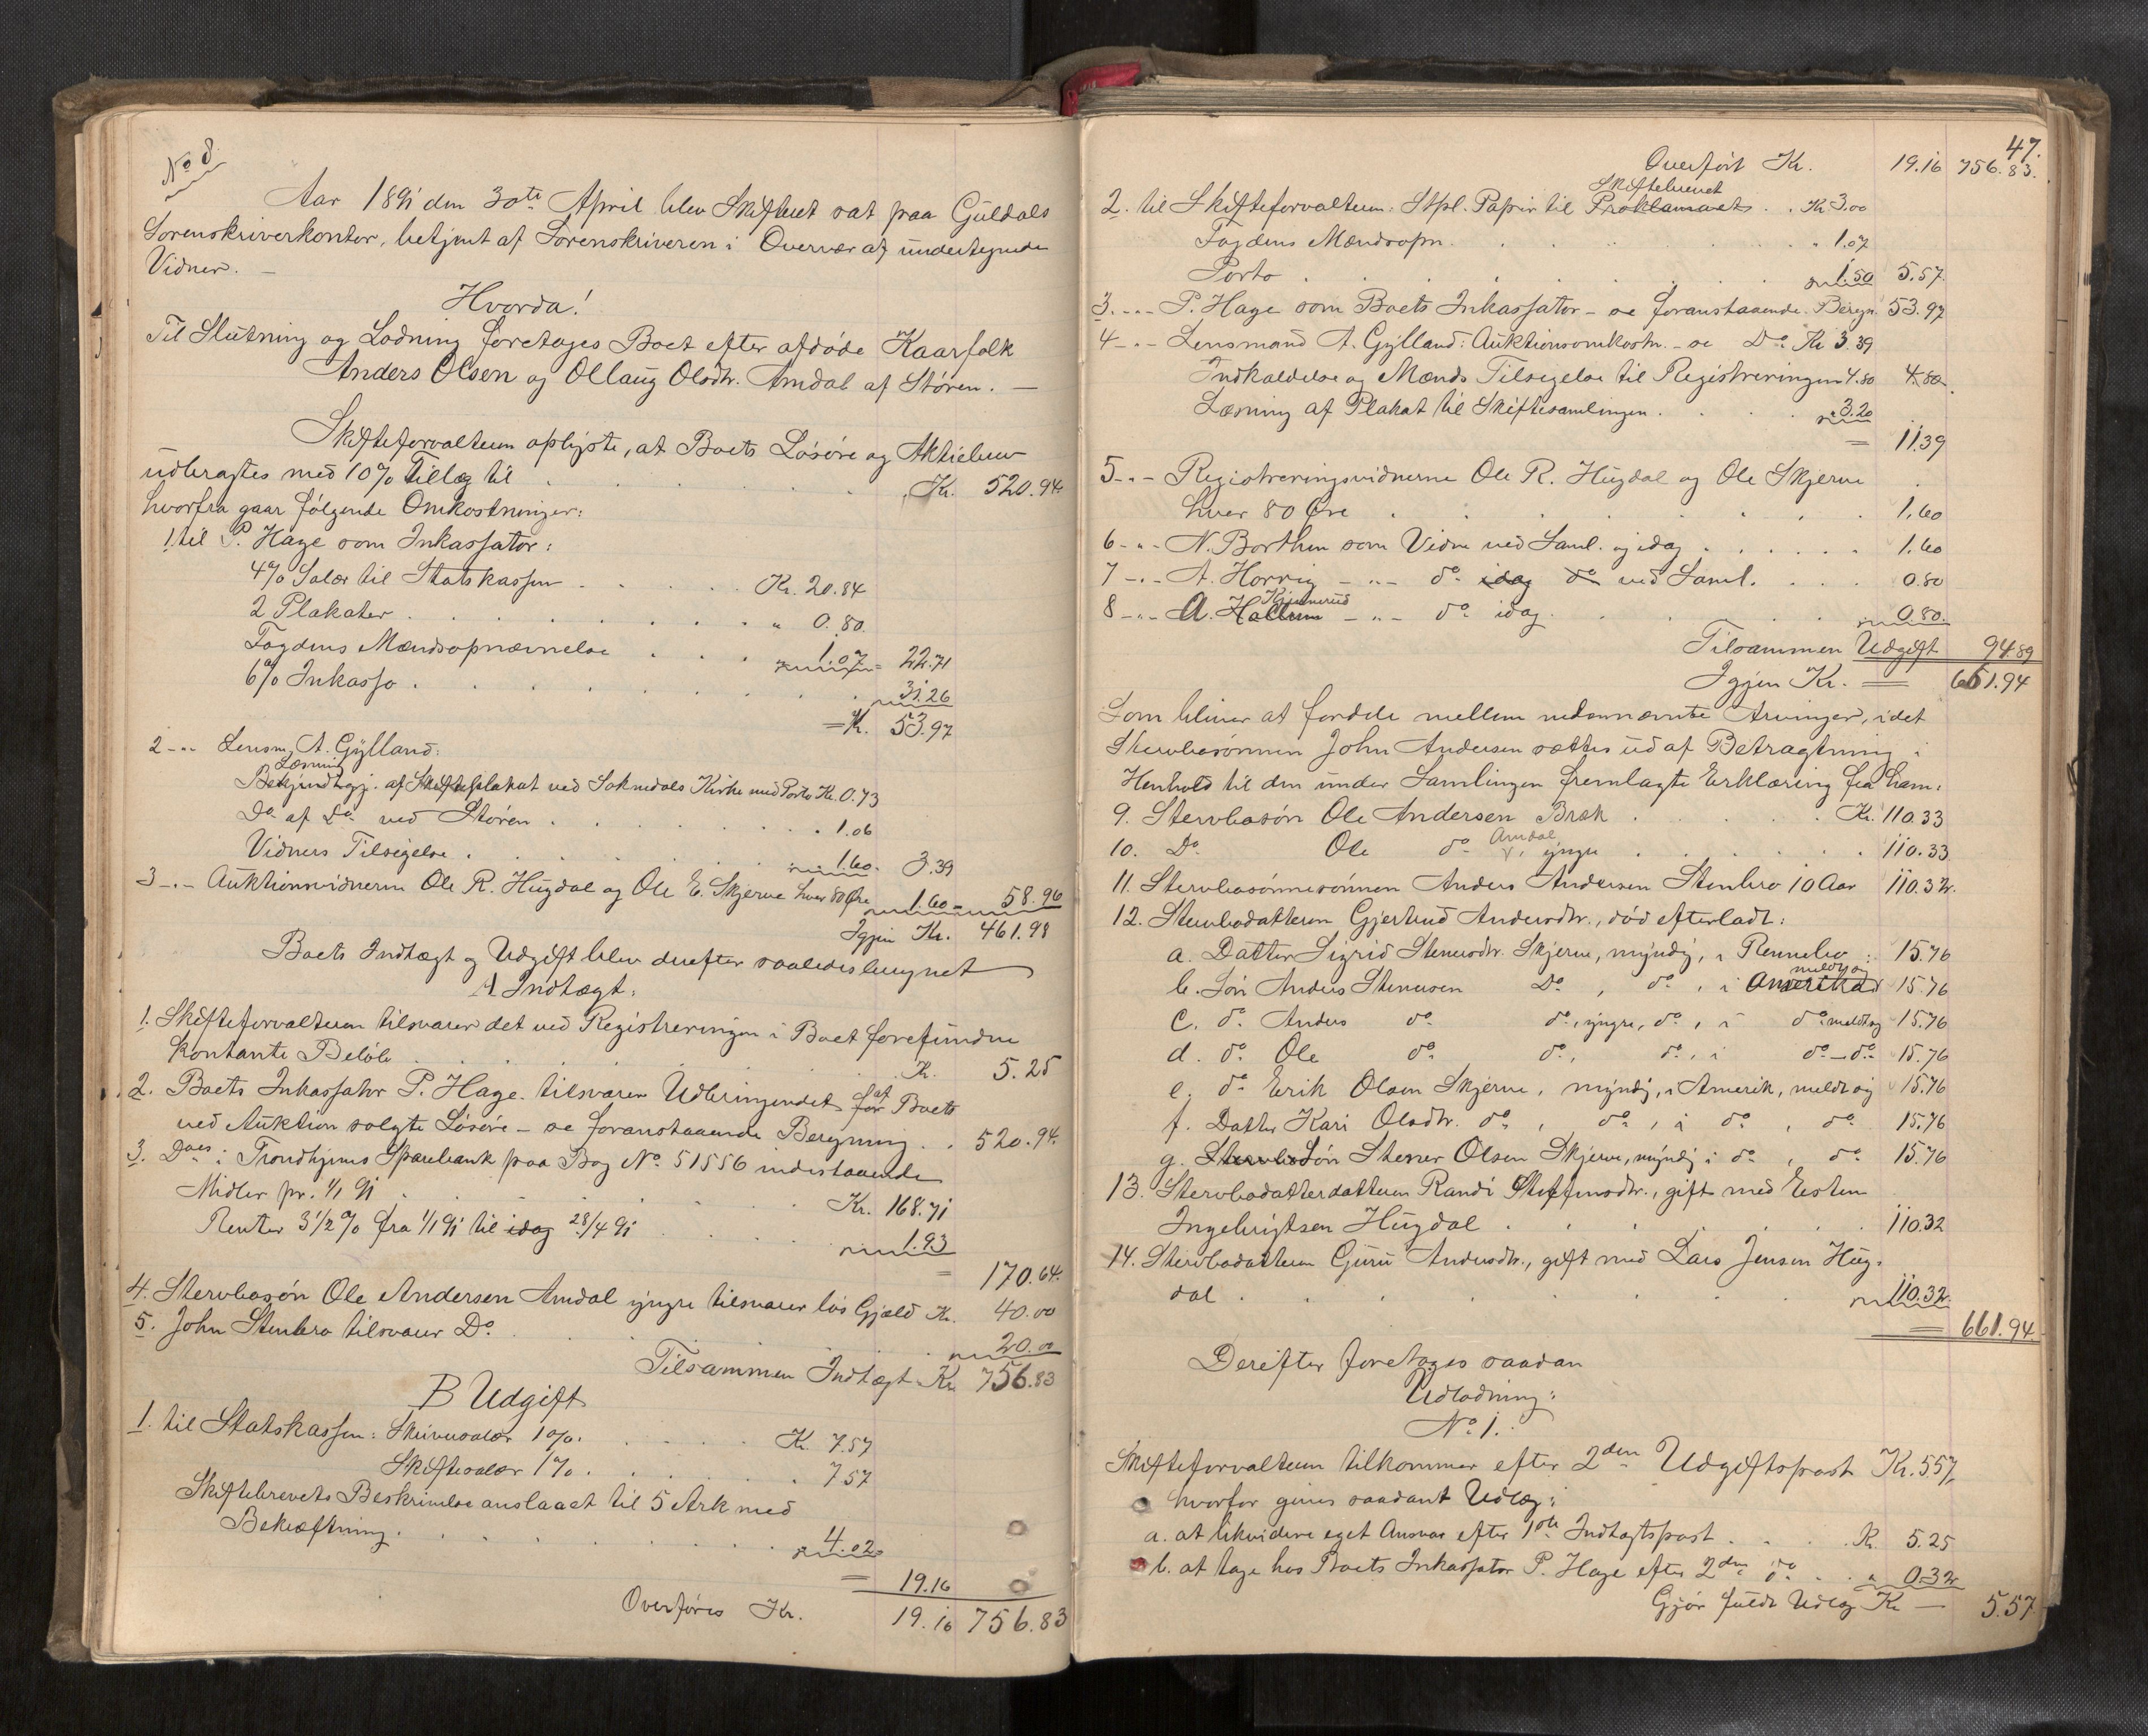 No 8.
Aar 1891 den 30te April blev Skifteret sat paa Guldals
Sorenskriverkontor, betjent af Sorenskriveren i Overvær af undertegnede
Vidner. —
Hvorda!
Til Slutning og Lodning foretages Boet efter afdøde Kaarfolk
Anders Olsen og Ollaug Olsdtr. Amdal af Støren. —
Skifteforvalteren oplyste, at Boets Løsøre og Aktiebrev
udbragtes med 10% Tillæg til . . . Kr. 520.94.
hvorfra gaar følgende Omkostninger:
1. til P. Hage som Inkassator:
4% Salær til Statskassen . . . Kr. 20.84
2 Plakater . . . " 0.80.
Fogdens Mændsopnævnelse . . . 1.07 = 22.71
6% Inkasso . . . 31.26
= Kr. 53.97
2 -"- Lensm. A. Gylland:
Læsning
Bekjendtgj. af Skifteplakat ved Soknedals Kirke med Porto Kr. 0.73
Do af Do ved Støren . . . 1.06
Vidners Tilsigelse . . . 1.60. 3.39
3 -"- Auktionsvidnerne Ole R. Hugdal og Ole E. Skjerve hver 80 Øre 1.60 = 58.96
Igjen Kr. 461.98
Boets Indtægt og Udgift blev derefter saaledes beregnet
A Indtægt:
1. Skifteforvalteren tilsvarer det ved Registreringen i Boet forefundne
kontante Beløb . . . Kr. 5.25
2. Boets Inkassator P. Hage tilsvarer Udbringendet af for Boets
ved Auktion solgte Løsøre - se foranstaaende Beregning . . 520.94.
3. Does i Trondhjems Sparebank paa Bog No 51556 indestaaende
Midler pr. 1/1 91 . . . Kr. 168.71
Renter 3 1/2 % fra 1/1 91 til idag 28/4 91 . . . 1.93
= 170.64.
4. Stervbosøn Ole Andersen Amdal yngre tilsvarer løs Gjæld Kr. 40.00
5. John Stenbro tilsvarer Do . . . 20.00
Tilsammen Indtægt Kr. 756.83
B Udgift
1. til Statskassen: Skriversalær 1%. . . . Kr. 7.57
Skiftesalær 1%. . . . 7.57
Skiftebrevets Beskrivelse anslaaet til 5 Ark med
Bekræftning. . . . 4.02
= 19.16
Overføres Kr. 19.16 756.83
47.
Overført Kr. 19.16 756.83.
Skiftebrevet
2. til Skifteforvalteren: Stpl. Papir til Proklamaets . . Kr. 3.00
Fogdens Mændsopn. . . . " 1.07
Porto . . . 1.50 5.57
3. -"- P. Hage som Boets Inkassator - se foranstaaende Beregn. 53.97
4 -"- Lensmand A. Gylland: Auktionsomkostn. - se Do Kr. 3.39
Indkaldelse og Mænds Tilsigelse til Registreringen 4.80 4.80
Læsning af Plakat til Skiftesamlingen . . . 3.20
= 11.39
5 -"- Registreringsvidnerne Ole R. Hugdal og Ole Skjerve
hver 80 Øre . . . 1.60
6 -"- N. Borthen som Vidne ved Saml. og idag . . . 1.60
7 -"- A. Horrig -"- do idag do ved Saml. . . . 0.80
8 -"- A. -"- do idag . . . 0.80.
Tilsammen Udgift 94.89
Igjen Kr. = 661.94
Som bliver at fordele mellem nedennævnte Arvinger, idet
Stervbosønnen John Andersen sættes ud af Betragtning i
Henhold til den under Samlingen fremlagte Erklæring fra ham:
9. Stervbosøn Ole Andersen Bræk . . . Kr. 110.33
10. Do Ole do Amdal, yngre . . . 110.33
11. Stervbosønnesønnen Anders Andersen Stenbro 10 Aar 110.32.
12. Stervbodatteren Gjertrud Andersdtr., død efterladt:
a. Datter Sigrid Stenersdtr. Skjerve, myndig, i Rennebo : 15.76
meldt sig
b. Søn Anders Stenersen Do , do , i Amerika 15.76
c. do Anders do do, yngre, do , i do meldt sig 15.76
d. do Ole do do, do, i do - do 15.76
e. do Erik Olsen Skjerve, myndig, i Amerik, meldt sig 15.76
f. Datter Kari Olsdtr. do , do , i do , do 15.76
g. Stervbo Søn Stener Olsen Skjerve, myndig i do , do 15.76
13. Stervbodatterdatteren Randi Steffensdtr., gift med Esten
Ingebrigtsen Hugdal . . . 110.32
14. Stervbodatteren Guru Andersdtr., gift med Lars Jensen Hug-
dal . . . 110.32.
= 661.94.
Derefter foretages saadan
Udlodning:
No 1.
Skifteforvalteren tilkommer efter 2den Udgiftspost Kr. 5.57,
hvorfor gives saadant Udlæg:
a. at likvidere eget Ansvar efter 1ste Indtægtspost . . . Kr. 5.25
b. at tage hos Boets Inkassator P. Hage efter 2den do . . " 0.32
Gjør fuldt Udlæg Kr. — 5.57